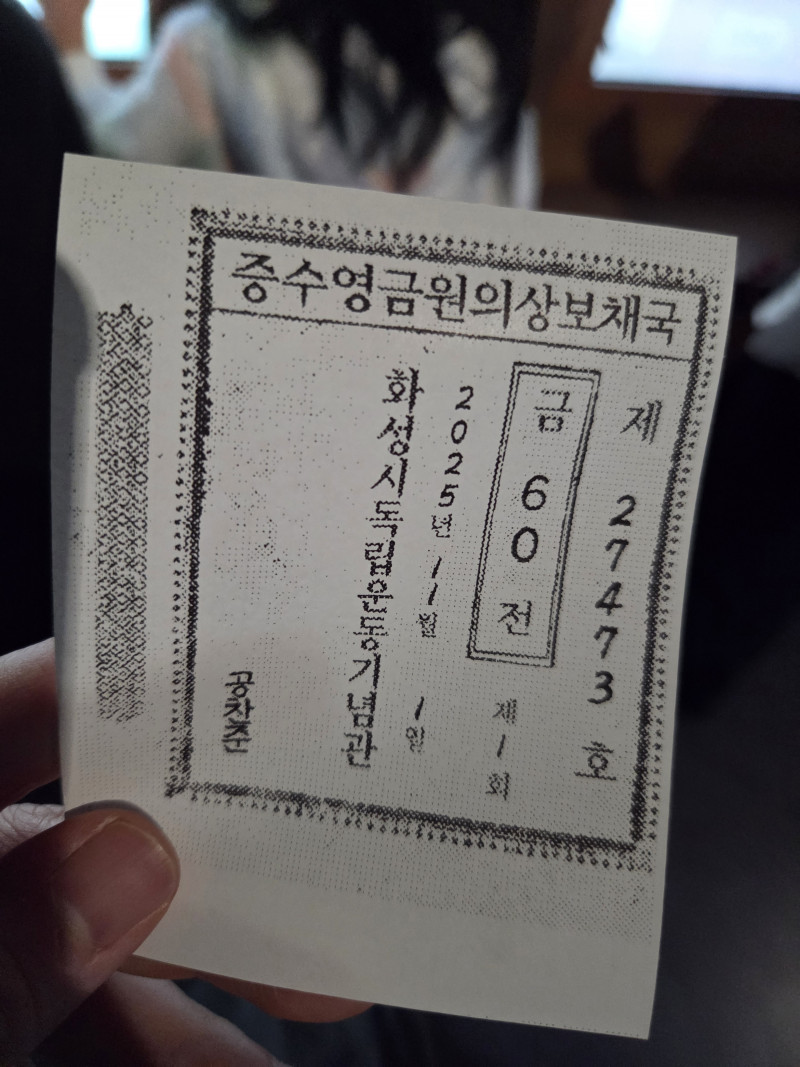 국채보상의원금영수증
제 27473 호
금 60 전
제 1 회
2025년 11월 1일
화성시독립운동기념관